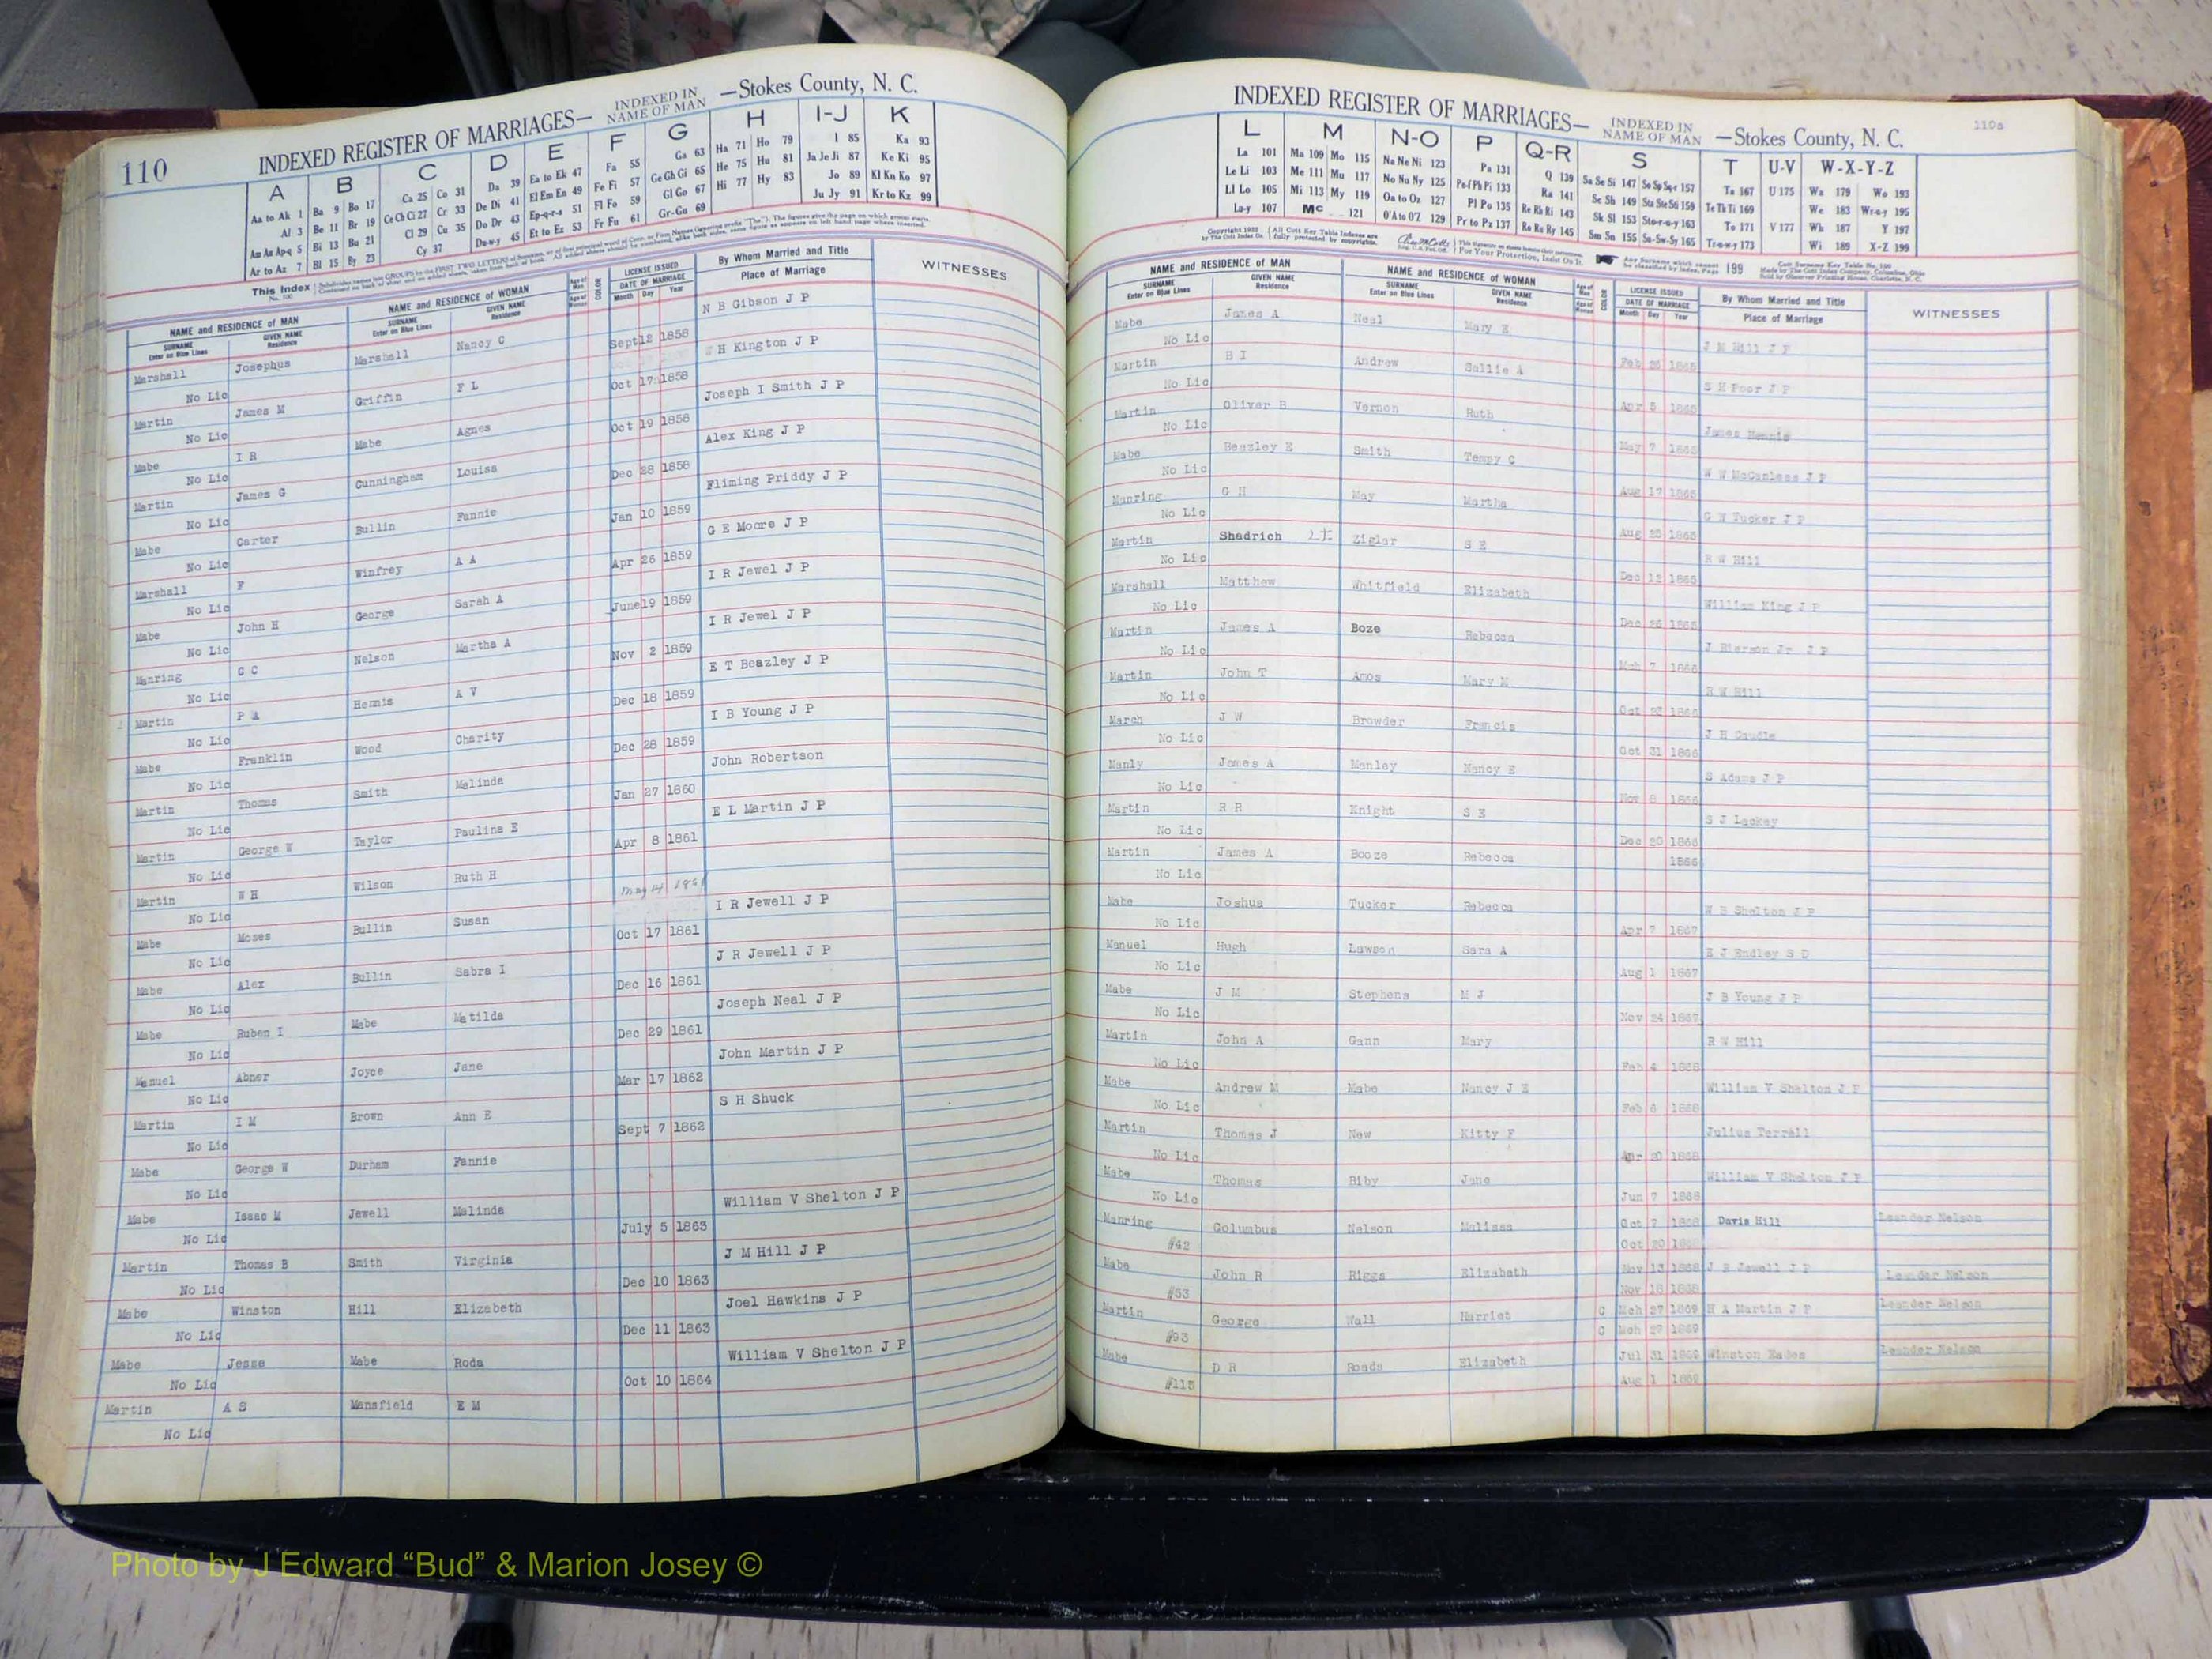 110
INDEXED REGISTER OF MARRIAGES— INDEXED IN NAME OF MAN —Stokes County, N. C.
A B C D E F G H I-J K
Aa to Ak 1 Ba 9 Bo 17 Ca 25 Co 31 Da 39 Ea to Ek 47 Fa 55 Ga 63 Ha 71 Ho 79 I 85 Ka 93
Al 3 Be 11 Br 19 Ce Ch Ci 27 Cr 33 De Di 41 El Em En 49 Fe Fi 57 Ge Gh Gi 65 He 75 Hu 81 Ja Je Ji 87 Ke Ki 95
Am An Ap-q 5 Bi 13 Bu 21 Cl 29 Cu 35 Do Dr 43 Ep-q-r-s 51 Fl Fo 59 Gl Go 67 Hi 77 Hy 83 Jo 89 Kl Kn Ko 97
Ar to Az 7 Bl 15 By 23 Cy 37 Du-w-y 45 Et to Ez 53 Fr Fu 61 Gr-Gu 69 Ju Jy 91 Kr to Kz 99
This Index
NAME and RESIDENCE of MAN NAME and RESIDENCE of WOMAN Age of Man COLOR LICENSE ISSUED By Whom Married and Title WITNESSES
SURNAME GIVEN NAME SURNAME GIVEN NAME Age of Woman DATE OF MARRIAGE Place of Marriage
Enter on Blue Lines Residence Enter on Blue Lines Residence Month Day Year
Marshall Josephus Marshall Nancy C N B Gibson J P
No Lic Sept 12 1858
Martin James M Griffin F L H Kington J P
No Lic Oct 17 1858
Mabe I R Mabe Agnes Joseph I Smith J P
No Lic Oct 19 1858
Martin James G Cunningham Louisa Alex King J P
No Lic Dec 28 1858
Mabe Carter Bullin Fannie Fliming Priddy J P
No Lic Jan 10 1859
Marshall F Winfrey A A G E Moore J P
No Lic Apr 26 1859
Mabe John H George Sarah A I R Jewel J P
No Lic June 19 1859
Manring C C Nelson Martha A I R Jewel J P
No Lic Nov 2 1859
Martin P A Hennis A V E T Beazley J P
No Lic Dec 18 1859
Mabe Franklin Wood Charity I B Young J P
No Lic Dec 28 1859
Martin Thomas Smith Malinda John Robertson
No Lic Jan 27 1860
Martin George W Taylor Pauline E E L Martin J P
No Lic Apr 8 1861
Martin W H Wilson Ruth H
No Lic May 14 1861
Mabe Moses Bullin Susan I R Jewell J P
No Lic Oct 17 1861
Mabe Alex Bullin Sabra I J R Jewell J P
No Lic Dec 16 1861
Mabe Ruben I Mabe Matilda Joseph Neal J P
No Lic Dec 29 1861
Manuel Abner Joyce Jane John Martin J P
No Lic Mar 17 1862
Martin I M Brown Ann E S H Shuck
No Lic Sept 7 1862
Mabe George W Durham Fannie
No Lic
Mabe Isaac M Jewell Malinda William V Shelton J P
No Lic July 5 1863
Martin Thomas B Smith Virginia J M Hill J P
No Lic Dec 10 1863
Mabe Winston Hill Elizabeth Joel Hawkins J P
No Lic Dec 11 1863
Mabe Jesse Mabe Roda William V Shelton J P
No Lic Oct 10 1864
Martin A S Mansfield E M
No Lic
110a
INDEXED REGISTER OF MARRIAGES— INDEXED IN NAME OF MAN —Stokes County, N. C.
L M N-O P Q-R S T U-V W-X-Y-Z
La 101 Ma 109 Mo 115 Na Ne Ni 123 Pa 131 Q 139 Sa Se Si 147 So Sp Sq-r 157 Ta 167 U 175 Wa 179 Wo 193
Le Li 103 Me 111 Mu 117 No Nu Ny 125 Pe-f Ph Pi 133 Ra 141 Sc Sh 149 Sta Ste Sti 159 Te Th Ti 169 We 183 Wr-u-y 195
Ll Lo 105 Mi 113 My 119 Oa to Oz 127 Pl Po 135 Re Rh Ri 143 Sk Sl 153 Sto-r-u-y 163 To 171 V 177 Wh 187 Y 197
Lu-y 107 Mc 121 O'A to O'Z 129 Pr to Pz 137 Ro Ru Ry 145 Sm Sn 155 Su-Sw-Sy 165 Tr-u-w-y 173 Wi 189 X-Z 199
NAME and RESIDENCE of MAN NAME and RESIDENCE of WOMAN Age of Man COLOR LICENSE ISSUED By Whom Married and Title WITNESSES
SURNAME GIVEN NAME SURNAME GIVEN NAME Age of Woman DATE OF MARRIAGE Place of Marriage
Enter on Blue Lines Residence Enter on Blue Lines Residence Month Day Year
Mabe James A Neal Mary E J M Hill J P
No Lic Feb 26 1865
Martin B I Andrew Sallie A S H Poor J P
No Lic Apr 5 1865
Martin Oliver B Vernon Ruth James Hennis
No Lic May 7 1865
Mabe Beazley E Smith Tempy C W W McCanless J P
No Lic Aug 17 1865
Manring G H May Martha G W Tucker J P
No Lic Aug 1865
Martin Shadrich Zigler S E R W Hill
No Lic Dec 12 1865
Marshall Matthew Whitfield Elizabeth William King J P
No Lic Dec 1865
Martin James A Boze Rebecca J Pierson Jr J P
No Lic Mch 7 1866
Martin John T Amos Mary M R W Hill
No Lic Oct 1866
March J W Browder Francis J H Caudle
No Lic Oct 31 1866
Manly James A Manley Nancy E S Adams J P
No Lic Nov 8 1866
Martin R R Knight S E S J Lackey
No Lic Dec 20 1866
Martin James A Booze Rebecca 1866
No Lic
Mabe Joshua Tucker Rebecca W B Shelton J P
No Lic Apr 7 1867
Manuel Hugh Lawson Sara A E J Endley S D
No Lic Aug 1 1867
Mabe J M Stephens M J J B Young J P
No Lic Nov 24 1867
Martin John A Gann Mary R W Hill
No Lic Feb 4 1868
Mabe Andrew M Mabe Nancy J E William V Shelton J P
No Lic Feb 6 1868
Martin Thomas J New Kitty F Julius Terrell
No Lic Apr 20 1868
Mabe Thomas Biby Jane William V Shelton J P
No Lic Jun 7 1868
Manring Columbus Nelson Malissa Oct 7 1868 Davis Hill Leander Nelson
#42 Oct 20 1868
Mabe John R Riggs Elizabeth Nov 13 1868 J R Jewell J P Leander Nelson
#53 Nov 18 1868
Martin George Wall Harriet C Mch 27 1869 H A Martin J P Leander Nelson
#93 C Mch 27 1869
Mabe D R Roads Elizabeth Jul 31 1869 Winston Eades Leander Nelson
#115 Aug 1 1869
Photo by J Edward “Bud” & Marion Josey ©